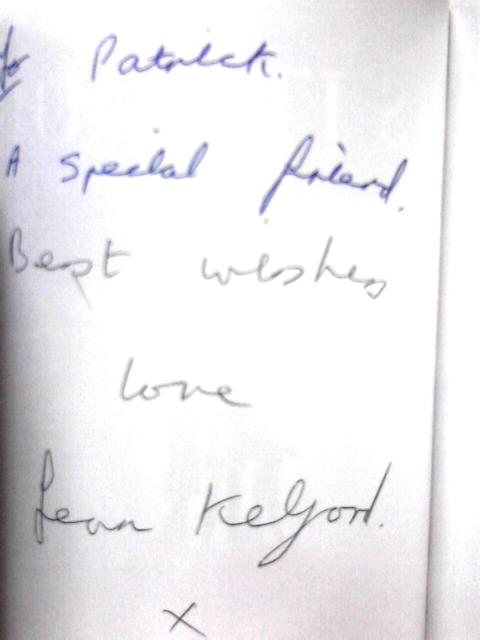 to Patrick.
A special friend.
Best wishes
love
Jean Kelford.
x